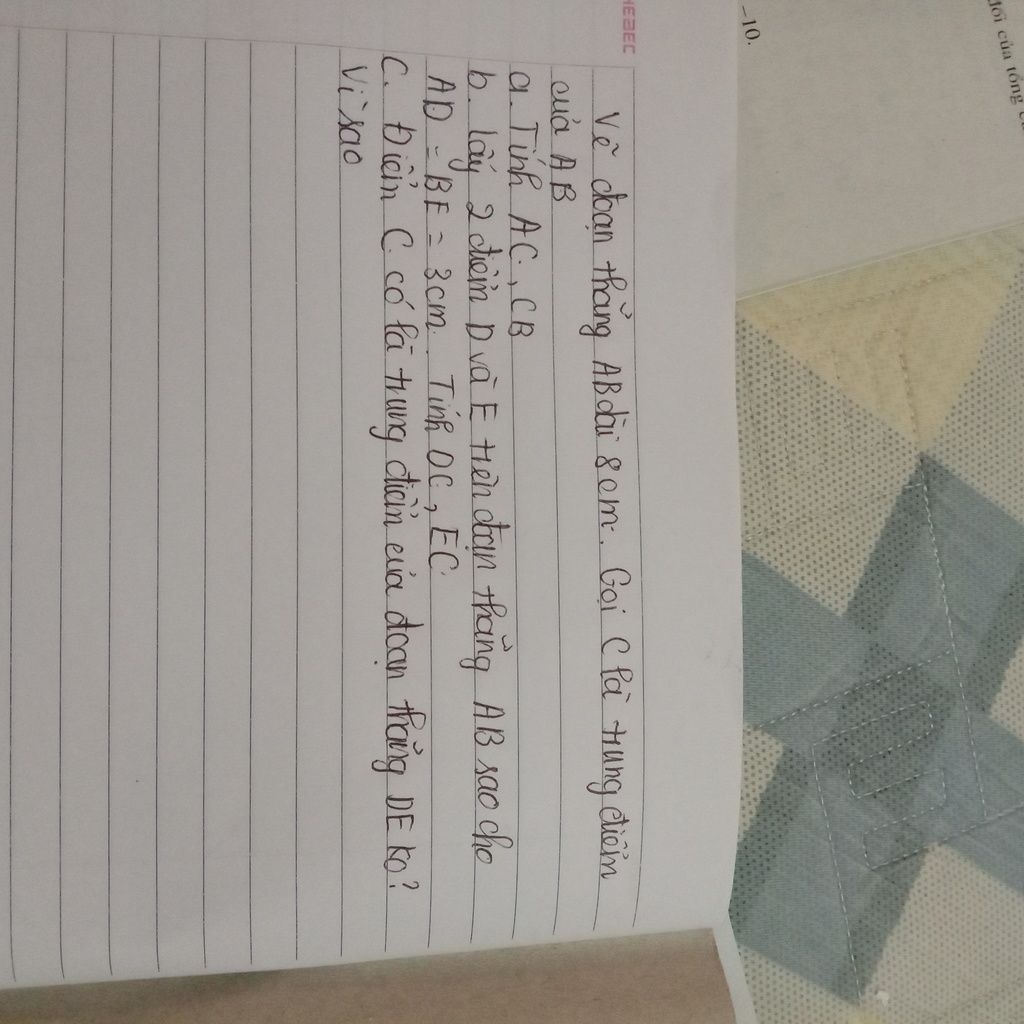 Vẽ đoạn thẳng AB dài 8cm. Gọi C là trung điểm
của AB
a. Tính AC, CB
b. lấy 2 điểm D và E trên đoạn thẳng AB sao cho
AD = BE = 3cm. Tính DC, EC
C. Điểm C. có là trung điểm của đoạn thẳng DE ko?
Vì sao
-10.
đối của tổng